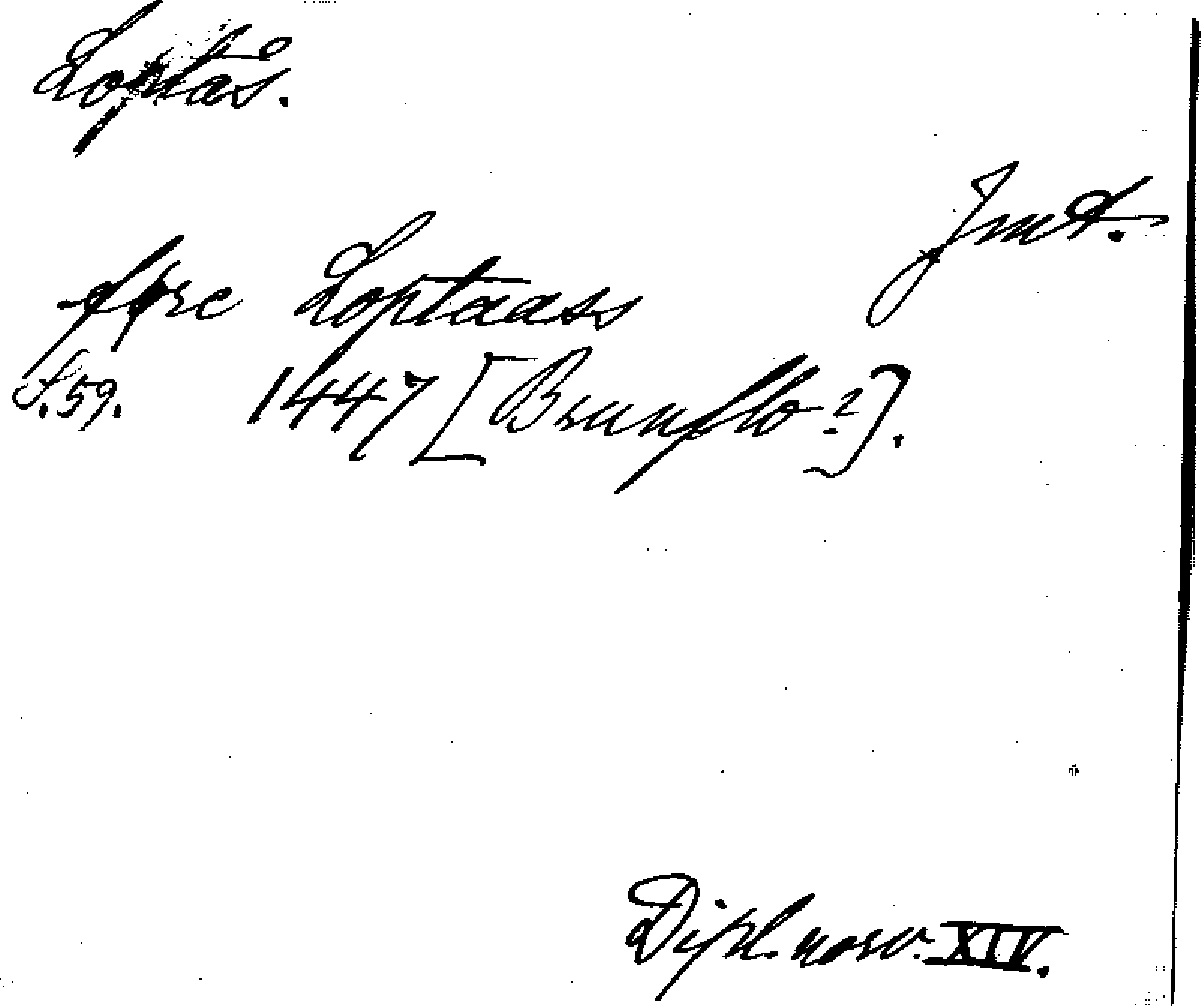 Loptås.
Jmt.
fyre Loptaass
S. 59. 1447 [Brunflo?].
Dipl. norv. XIV.